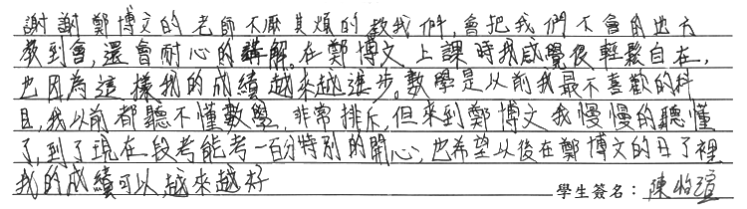 謝謝鄭博文的老師不厭其煩的教我們,會把我們不會的地方
教到會,還會耐心的講解。在鄭博文上課時我感覺很輕鬆自在,
也因為這樣我的成績越來越進步。數學是以前我最不喜歡的科
目,我以前都聽不懂數學,非常排斥,但來到鄭博文我慢慢的聽懂
了,到了現在段考能考一百分特別的開心,也希望以後在鄭博文的日子裡
我的成績可以越來越好
學生簽名:陳怡瑄